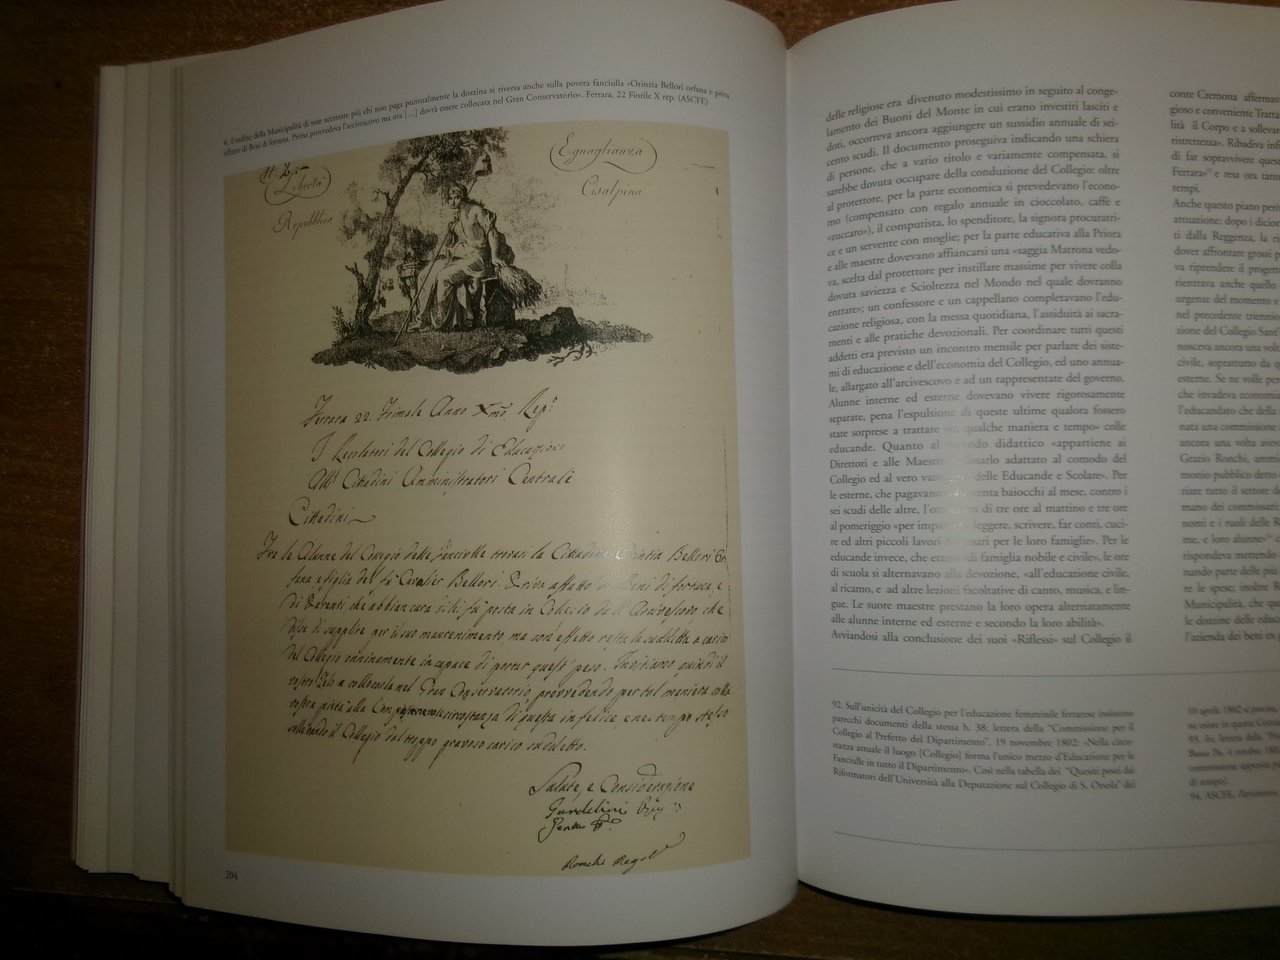 6. L'ordine della Municipalità di non accettare più chi non paga puntualmente la dozzina si riversa anche sulla povera fanciulla «Orinzia Bellori orfana e priva
affatto di Beni di fortuna. Prima provvedeva l'arcivescovo ma ora [...] dovrà essere collocata nel Gran Conservatorio». Ferrara, 22 Fiorile X rep. (ASCFE)
Libertà
Eguaglianza
Repubblica
Cisalpina
Ferrara 22. Anno Xmo. Rep.
I del Collegio di Educazione
Cittadini Amministratori Centrale
Cittadini
Fra le Alunne del Collegio delle Fanciulle trovasi la Cittadina Orintia Bellori Or-
fana e figlia del fu Cavalier Bellori. Priva affatto di Beni di fortuna, e
di Parenti che abbian cura di lei fù posta in Collegio dall'Arcivescovo che
di supplire per il suo mantenimento ma così effetto resta la suddetta a carico
del Collegio onninamente incapace di portar questo peso. Invitiamo quindi il
vostro Zelo a collocarla nel Gran Conservatorio, provvedendo per tal maniera colla
vostra pietà alla circostanza di questa infelice e nel tempo stesso
sollevando il Collegio dal troppo gravoso carico suddetto.
Salute, e Considerazione
Ronchi
204
delle religiose era divenuto modestissimo in seguito al conge-
lamento dei Buoni del Monte in cui erano investiti lasciti e
doti, occorreva ancora aggiungere un sussidio annuale di sei-
cento scudi. Il documento proseguiva indicando una schiera
di persone, che a vario titolo e variamente compensata, si
sarebbe dovuta occupare della conduzione del Collegio: oltre
al protettore, per la parte economica si prevedevano l'econo-
mo (compensato con regalo annuale in cioccolato, caffè e
«zuccaro»), il computista, lo spenditore, la signora procuratri-
ce e un servente con moglie; per la parte educativa alla Priora
e alle maestre dovevano affiancarsi una «saggia Matrona vedo-
va, scelta dal protettore per instillare massime per vivere colla
dovuta saviezza e Scioltezza nel Mondo nel quale dovranno
entrare»; un confessore e un cappellano completavano l'edu-
cazione religiosa, con la messa quotidiana, l'assiduità ai sacra-
menti e alle pratiche devozionali. Per coordinare tutti questi
addetti era previsto un incontro mensile per parlare dei siste-
mi di educazione e dell'economia del Collegio, ed uno annua-
le, allargato all'arcivescovo e ad un rappresentate del governo.
Alunne interne ed esterne dovevano vivere rigorosamente
separate, pena l'espulsione di queste ultime qualora fossero
state sorprese a trattare «in qualche maniera e tempo» colle
educande. Quanto al metodo didattico «appartiene ai
Direttori e alle Maestre il fissarlo adattato al comodo del
Collegio ed al vero vantaggio delle Educande e Scolare». Per
le esterne, che pagavano baiocchi al mese, contro i
sei scudi delle altre, l'orario di tre ore al mattino e tre ore
al pomeriggio «per imparare leggere, scrivere, far conti, cuci-
re ed altri piccoli lavori necessari per le loro famiglie». Per le
educande invece, che erano «di famiglia nobile e civile», le ore
di scuola si alternavano alla devozione, «all'educazione civile,
al ricamo, e ad altre lezioni facoltative di canto, musica, e lin-
gue. Le suore maestre prestano la loro opera alternatamente
alle alunne interne ed esterne e secondo la loro abilità».
Avviandosi alla conclusione dei suoi «Riflessi» sul Collegio il
92. Sull'unicità del Collegio per l'educazione femminile ferrarese insistono
parecchi documenti della stessa b. 38: lettera della "Commissione per il
Collegio al Prefetto del Dipartimento". 19 novembre 1802: «Nella circo-
stanza attuale il luogo [Collegio] forma l'unico mezzo d'Educazione per le
Fanciulle in tutto il Dipartimento». Così nella tabella dei "Quesiti posti dai
Riformatori dell'Università alla Deputazione sul Collegio di S. Orsola" del
conte Cremona affermav
gioso e conveniente Tratta
lità il Corpo e a sollevar
ristrettezza». Ribadiva infi
di far sopravvivere ques
Ferrara» e tesa ora tant
tempi.
Anche questo piano però
attuazione: dopo i dicio
ti dalla Reggenza, la ri
dover affrontare grossi p
va riprendere il progett
rientrava anche quello
urgenze del momento e
nel precedente triennio
zione del Collegio Sant
nosceva ancora una volt
civile, soprattutto da q
esterne. Se ne volle per
che invadeva economia
l'educandato che della
nata una commissione
ancora una volta avev
Grazio Ronchi, ammin
monio pubblico detto
ziare tutto il settore d
mano dei commissari
nomi e i ruoli delle
me, e loro alunne» c
rispondeva mettendo
nando parte delle più
te le spese; inoltre
Municipalità, che qu
le dozzine delle educ
l'azienda dei beni ex
10 aprile 1802 si precisa,
ne esiste in questa Comu
93. Ivi, lettera della "De
Basso Po, 4 ottobre 180
commissione apposita p
di tempo).
94. ASCFE, Patrimonio